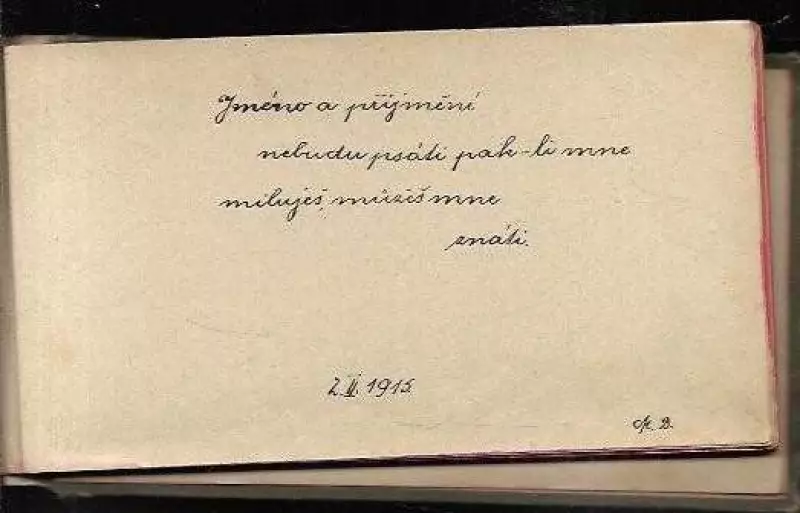 Jméno a příjmění
nebudu psáti pak-li mne
miluješ, můžeš mne
znáti.
2. II. 1915
B.